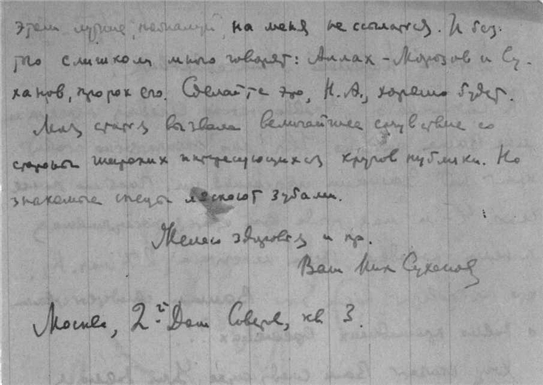 этом лучше, пожалуй, на меня не ссылаться. И без
того слишком много говорят: Аллах - Морозов и Су-
ханов, пророк его. Сделайте это, Н.А., хорошо будет.
Моя статья вызвала величайшее сочувствие со
стороны широких интересующихся кругов публики. Но
знакомые спецы ляскают зубами.
Желаю здоровья и пр.
Ваш Мих Суханов
Москва, 2й Дом Советов, кв 3.